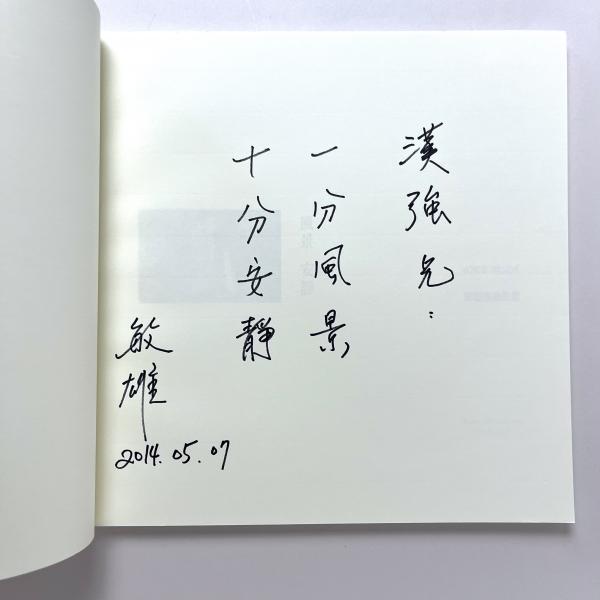 漢強兄：
一分風景
十分安靜
敏雄
2014.05.07